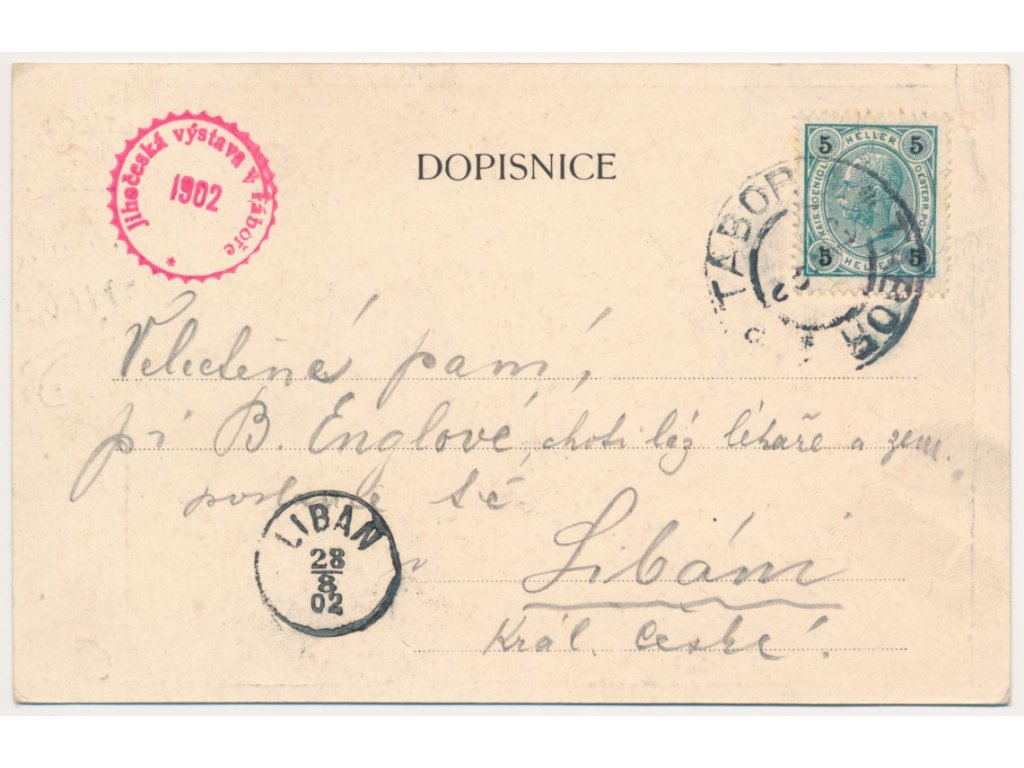 Jihočeská výstava v Táboře
1902
*
DOPISNICE
5 HELLER 5
KAIS. KOENIGL. OESTERR. POST
5 HELLER 5
TABOR
TABOR
Veletěná paní,
pí B. Englové, choti léka lékaře a zem.
LIBAN
28
8
02
v Libáni
Král. České!